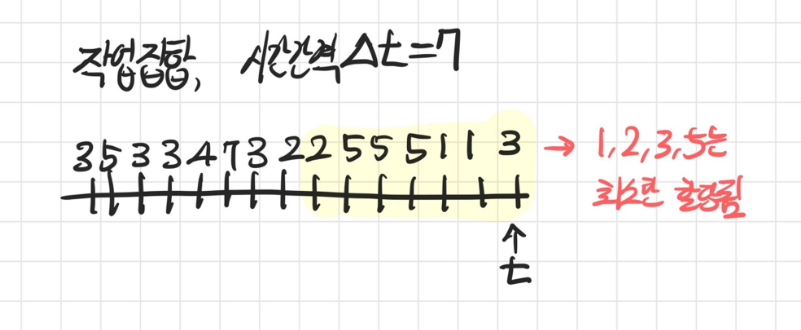 작업집합, 시간간격 Δt=7
3 5 3 3 4 7 3 2 2 5 5 5 1 1 3 → 1,2,3,5는
최소한 할당됨
↑
t